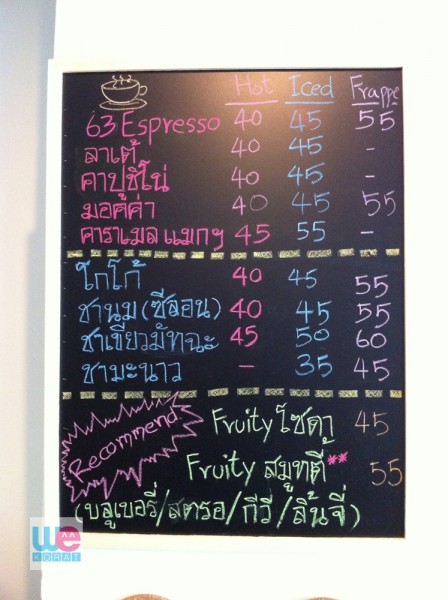 Hot Iced Frappe
63 Espresso 40 45 55
ลาเต้ 40 45 -
คาปูชิโน่ 40 45 -
มอคค่า 40 45 55
คาราเมล แมกฯ 45 55 -
โกโก้ 40 45 55
ชานม (ซีลอน) 40 45 55
ชาเขียวมัทฉะ 45 50 60
ชามะนาว - 35 45
Recommend
Fruity โซดา 45
Fruity สมูทตี้** 55
(บลูเบอรี่/สตรอ/กีวี/ลิ้นจี่)
we
KORAT